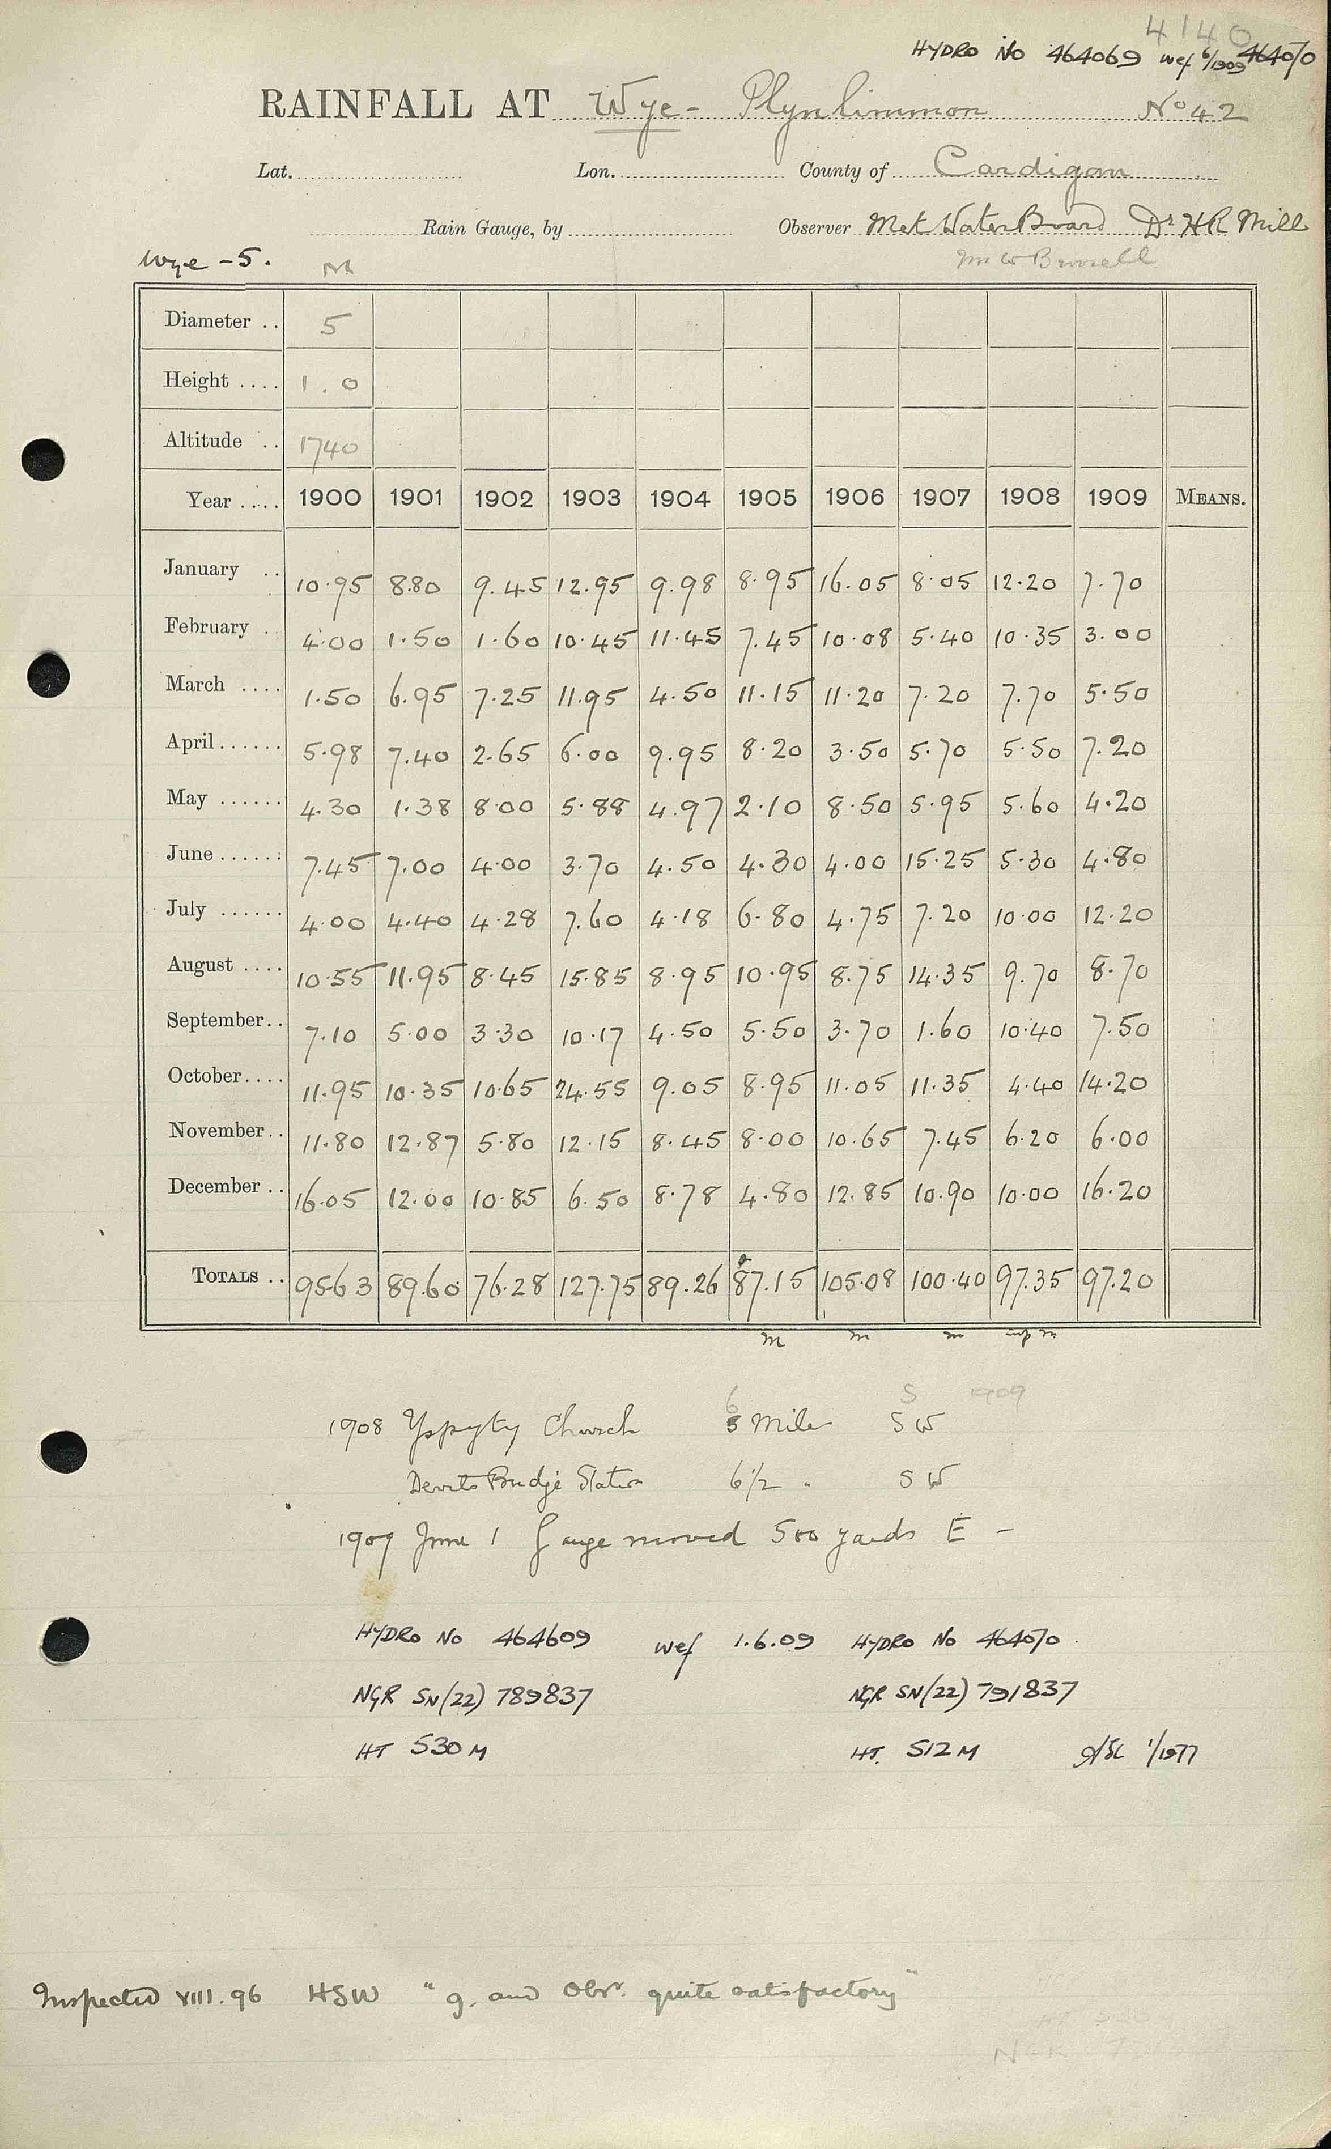 4140
HYDRO NO 464069 wef 6/1909 464070
RAINFALL AT Wye - Plynlimmon No 42
Lat. Lon. County of Cardigan
Rain Gauge, by Observer Met Water Board Dr H R Mill
Wye - 5.
Diameter .. 5
Height .... 1.0
Altitude .. 1740
Year .... 1900 1901 1902 1903 1904 1905 1906 1907 1908 1909 MEANS.
January .. 10.95 8.80 9.45 12.95 9.98 8.95 16.05 8.05 12.20 7.70
February .. 4.00 1.50 1.60 10.45 11.45 7.45 10.08 5.40 10.35 3.00
March .... 1.50 6.95 7.25 11.95 4.50 11.15 11.20 7.20 7.70 5.50
April ...... 5.98 7.40 2.65 6.00 9.95 8.20 3.50 5.70 5.50 7.20
May ...... 4.30 1.38 8.00 5.88 4.97 2.10 8.50 5.95 5.60 4.20
June ...... 7.45 7.00 4.00 3.70 4.50 4.30 4.00 15.25 5.30 4.80
July ...... 4.00 4.40 4.28 7.60 4.18 6.80 4.75 7.20 10.00 12.20
August .... 10.55 11.95 8.45 15.85 8.95 10.95 8.75 14.35 9.70 8.70
September .. 7.10 5.00 3.30 10.17 4.50 5.50 3.70 1.60 10.40 7.50
October .... 11.95 10.35 10.65 24.55 9.05 8.95 11.05 11.35 4.40 14.20
November .. 11.80 12.87 5.80 12.15 8.45 8.00 10.65 7.45 6.20 6.00
December .. 16.05 12.00 10.85 6.50 8.78 4.80 12.85 10.90 10.00 16.20
TOTALS .. 95.63 89.60 76.28 127.75 89.26 87.15 105.08 100.40 97.35 97.20
m m m m
6 S 1909
1908 Yspyty Church 5 Miles SW
Devils Bridge Station 6 1/2 " SW
1909 June 1 Gauge moved 500 yards E -
HYDRO NO 464609 wef 1.6.09 HYDRO NO 464070
NGR SN(22) 789837 NGR SN(22) 791837
HT 530 M HT. 512 M 1/1977
Inspected VIII.96 HSW "g. and Obsr. quite satisfactory"